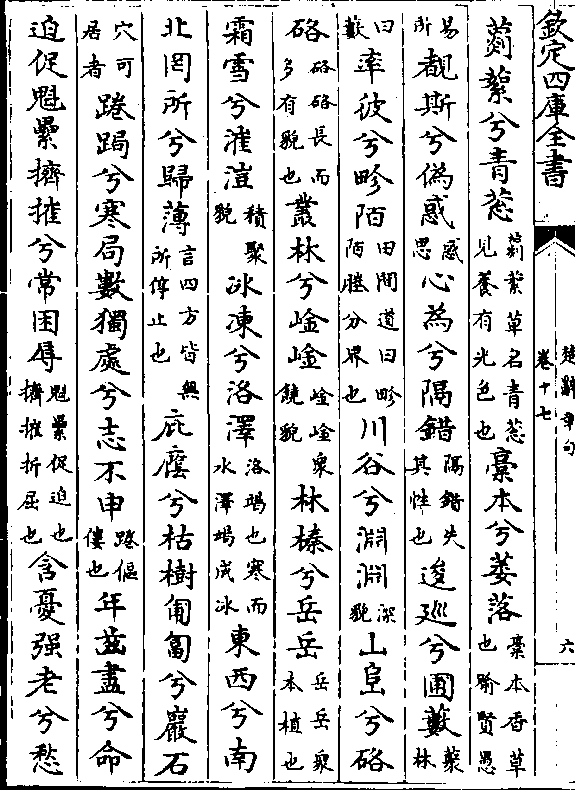 欽定四庫全書
楚辭章句
卷十七
六
葪蘩兮青葱葪蘩草名青葱見養有光色也槀本兮萎落槀本香草也喻賢愚
易所覩斯兮偽惑感思心為兮隔錯隔錯失其性也逡巡兮圃藪藪林
曰藪率彼兮畛陌田間道曰畛陌塍分界也川谷兮淵淵深貌山𨸏兮硌
硌硌硌長而多有貌也叢林兮崯崯崯崯衆饒貌林榛兮岳岳岳岳衆本植也
霜雪兮漼溰積聚貌冰凍兮洛澤洛竭也寒而水澤竭成冰東西兮南
北罔所兮歸薄言四方皆無所停止也庇廕兮枯樹匍匐兮巖石
穴可居者踡跼兮寒局數獨處兮志不申踡傴僂也年兹盡兮命
迫促魁纍擠摧兮常困辱魁纍促迫也擠摧折屈也含憂强老兮愁